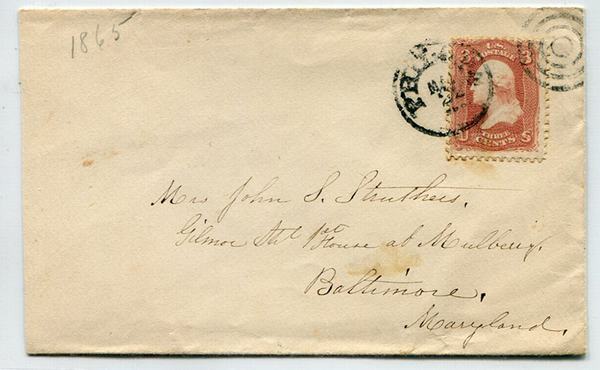 1865
3 U.S. 3
POSTAGE
THREE
U CENTS S
Mrs John S. Struthers,
Gilmor St. 1st House ab Mulberry.
Baltimore,
Maryland.